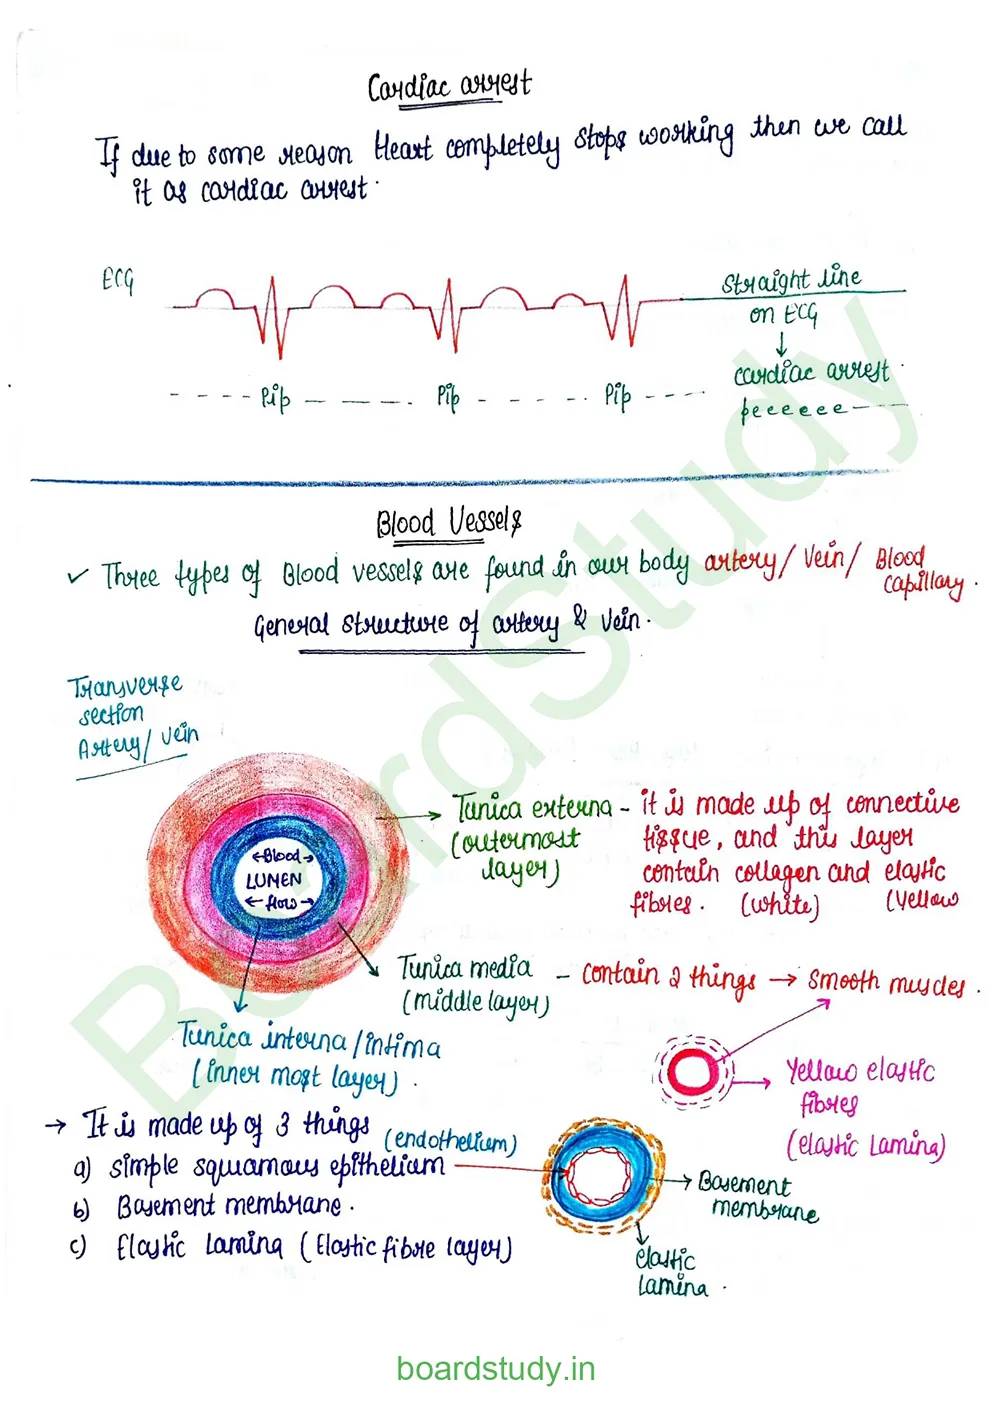 Cardiac arrest
If due to some reason Heart completely stops working then we call
it as cardiac arrest.
ECG
Straight line
on ECG
↓
cardiac arrest.
- - - - Pip - - - - . Pip - - - - . Pip - - - -
peeeeee - - -
Blood Vessels
✓ Three types of Blood vessels are found in our body artery/ Vein/ Blood
capillary.
General structure of artery & vein.
Transverse
section
Artery/ Vein
←Blood→
LUMEN
←flow→
Tunica externa - it is made up of connective
(outermost tissue, and this layer
layer) contain collagen and elastic
fibres. (white) (Yellow
Tunica media - contain 2 things → smooth muscles.
(middle layer)
Tunica interna/intima
(inner most layer).
Yellow elastic
fibres
(elastic Lamina)
→ It is made up of 3 things
(endothelium)
a) simple squamous epithelium
b) Basement membrane.
c) Elastic Lamina (Elastic fibre layer)
Basement
membrane
elastic
lamina.
BoardStudy
boardstudy.in